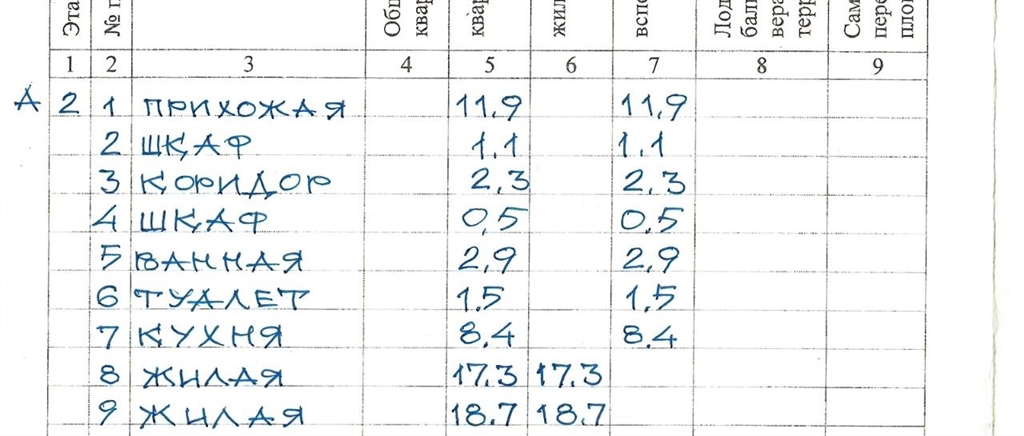 Эта № п Общ кварт квар жил вспо Лод балк вера терр Сам пере пло
1 2 3 4 5 6 7 8 9
А 2 1 ПРИХОЖАЯ 11,9 11,9
2 ШКАФ 1,1 1,1
3 КОРИДОР 2,3 2,3
4 ШКАФ 0,5 0,5
5 ВАННАЯ 2,9 2,9
6 ТУАЛЕТ 1,5 1,5
7 КУХНЯ 8,4 8.4
8 ЖИЛАЯ 17.3 17.3
9 ЖИЛАЯ 18.7 18.7